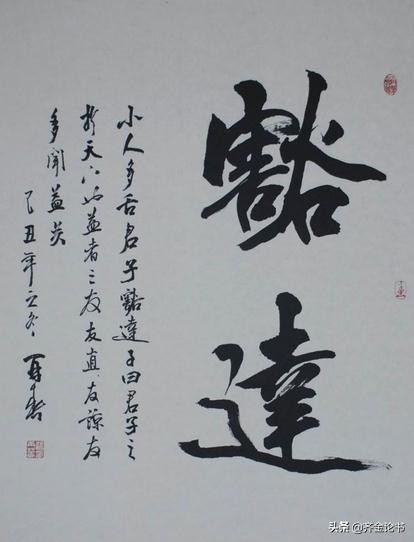 豁達
小人多舌君子豁達子曰君子之
於天下也益者三友友直友諒友
多聞益矣
己丑年之冬
头条 @齐金论书